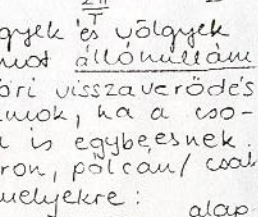 2π
T
gyek és völgyek
mot állóhullám
ri visszaverődés
unk, ha a cso-
is egybeesnek.
ron, pólcan/ csak
melyekre:
alap